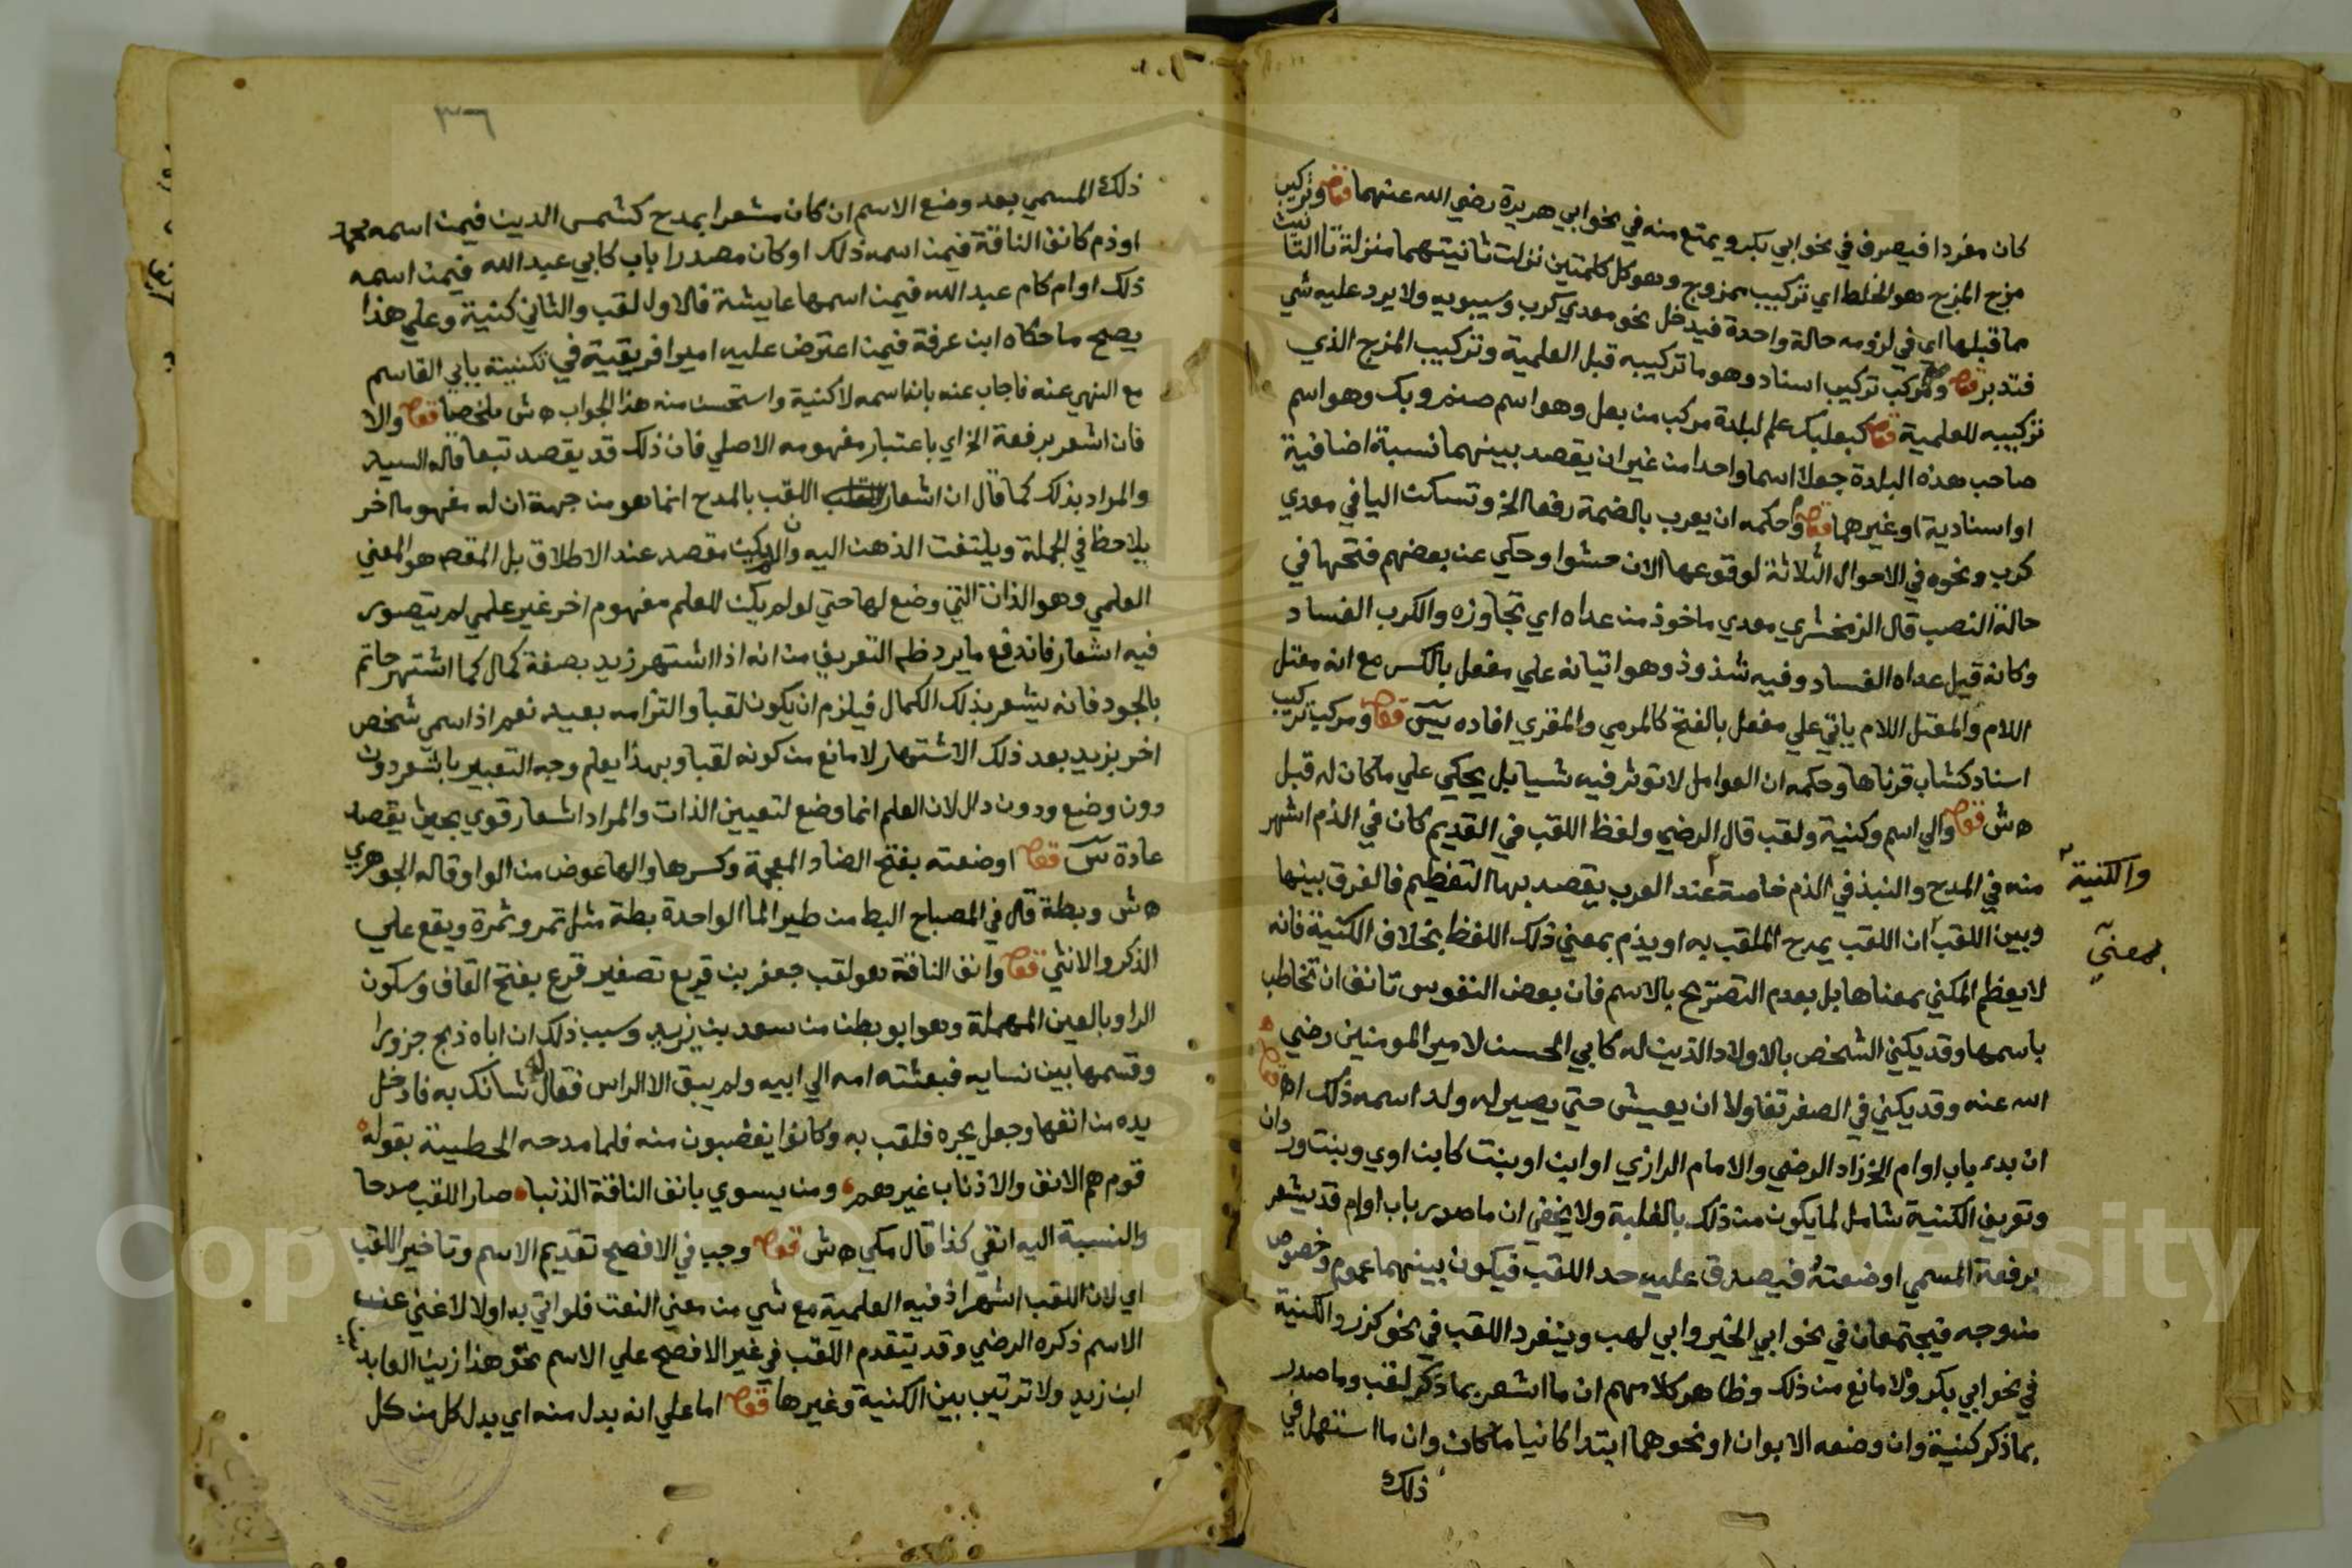 كان مفردا فيصرف في نحو ابي بكر ويمتنع منه في نحو ابي هريرة رضي الله عنهما قوله وتركيب
مزج المزج هو الخلط اي تركيب ممزوج وهو كل كلمتين نزلت ثانيتهما منزلة تا التانيث
مما قبلها اي في لزومه حالة واحدة فيدخل نحو معدي كرب وسيبويه ولا يرد عليه شي
فتدبر قوله ومركب تركيب اسناد وهو ما تركيبه قبل العلمية وتركيب المزج الذي
تركيبه للعلمية قوله كبعلبك علم لبلدة مركب من بعل وهو اسم صنم وبك وهو اسم
صاحب هذه البلدة جعلا اسما واحدا من غير ان يقصد بينهما نسبة اضافية
او اسنادية او غيرهما قوله وحكمه ان يعرب بالضمة رفعا الخ وتسكن اليا في معدي
كرب ونحوه في الاحوال الثلاثة لوقوعها الان حشوا وحكي عن بعضهم فتحها في
حالة النصب قال الزمخشري معدي ماخوذ من عداه اي تجاوزه والكرب الفساد
وكانه قيل عداه الفساد وفيه شذوذ وهو اتيانه علي مفعل بالكسر مع انه معتل
اللام والمعتل اللام ياتي علي مفعل بالفتح كالمرمي والمغزي افاده يس قوله ومركب تركيب
اسناد كشاب قرناها وحكمه ان العوامل لا توثر فيه شيا بل يحكي علي ما كان له قبل
ه ش قوله والي اسم وكنية ولقب قال الرضي ولفظ اللقب في القديم كان في الذم اشهر
منه في المدح والنبذ في الذم خاصة عند العرب يقصد بها التعظيم فالفرق بينها
والكنية
وبين اللقب ان اللقب يمدح الملقب به او يذم بمعني ذلك اللفظ بخلاف الكنية فانه
بمعني
لا يعظم المكني بمعناها بل بعدم التصريح بالاسم فان بعض النفوس تانف ان تخاطب
باسمها وقد يكني الشخص بالاولاد الذين له كابي الحسن لامير المومنين رضي
الله عنه وقد يكني في الصغر تفاولا ان يعيش حتي يصير له ولد اسمه ذلك اه قوله
ان بدء باب او ام الخ زاد الرضي والامام الرازي او ابن او بنت كابن اوي وبنت وردان
وتعريف الكنية شامل لما يكون من ذلك بالغلبة ولا يخفي ان ما صدر باب او ام قد يشعر
برفعة المسمي او ضعته فيصدق عليه حد اللقب فيكون بينهما عموم وخصوص
من وجه فيجتمعان في نحو ابي الخير وابي لهب وينفرد اللقب في نحو كرز والكنية
في نحو ابي بكر ولا مانع من ذلك وظاهر كلامهم ان ما اشعر بما ذكر لقب وما صدر
بما ذكر كنية وان وضعه الابوان او نحوهما ابتدا كائنا ما كان وان ما استعمل في
ذلك
٣٦
ذلك المسمي بعد وضع الاسم ان كان مشعرا بمدح كشمس الدين فيمن اسمه محمد
او ذم كانف الناقة فيمن اسمه ذلك او كان مصدرا باب كابي عبد الله فيمن اسمه
ذلك او ام كام عبد الله فيمن اسمها عايشة فالاول لقب والثاني كنية وعلي هذا
يصح ما حكاه ابن عرفة فيمن اعترض عليه امير افريقية في تكنيته بابي القاسم
مع النهي عنه فاجاب عنه بانه اسمه لا كنية واستحسن منه هذا الجواب ه ش ملخصا قوله والا
فان اشعر برفعة الخ اي باعتبار مفهومه الاصلي فان ذلك قد يقصد تبعا قاله السيد
والمراد بذلك كما قال ان اشعار اللقب بالمدح انما هو من جهة ان له مفهوما اخر
يلاحظ في الجملة ويلتفت الذهن اليه وان لم يكن مقصد عند الاطلاق بل المقصم هو المعني
العلمي وهو الذات التي وضع لها حتي لو لم يكن للعلم مفهوم اخر غير علمي لم يتصور
فيه اشعار فاندفع ما يرد ظم التعريف من انه اذا اشتهر زيد بصفة كمال كما اشتهر حاتم
بالجود فانه يشعر بذلك الكمال فيلزم ان يكون لقبا والتزامه بعيد نعم اذا سمي شخص
اخر بزيد بعد ذلك الاشتهار لا مانع من كونه لقبا وبهذا يعلم وجه التعبير باشعر دون
دون وضع ودون دال لان العلم انما وضع لتعيين الذات والمراد اشعار قوي بحيث يقصد
عادة س قوله او ضعته بفتح الضاد المعجمة وكسرها والها عوض من الواو قاله الجوهري
ه ش وبطة قال في المصباح البط من طير الما الواحدة بطة مثل تمر وتمرة ويقع علي
الذكر والانثي قوله وانف الناقة هو لقب جعفر بن قريع تصغير قرع بفتح القاف وسكون
الرا وبالعين المهملة وهو ابو بطن من سعد بن زيد وسبب ذلك ان اباه ذبح جزورا
وقسمها بين نسايه فبعثته امه الي ابيه ولم يبق الا الراس فقال له شانك به فادخل
يده من انفها وجعل يجره فلقب به وكانوا يغضبون منه فلما مدحه الحطيئة بقوله
قوم هم الانف والاذناب غيرهم ومن يسوي بانف الناقة الذنبا صار اللقب مدحا
والنسبة اليه انفي كذا قال مكي ه ش قوله وجب في الافصح تقديم الاسم وتاخير اللقب
اي لان اللقب اشهر اذ فيه العلمية مع شي من معني النعت فلو اتي به اولا لاغني عن
الاسم ذكره الرضي وقد يتقدم اللقب في غير الافصح علي الاسم نحو هذا زين العابدين
ابن زيد ولا ترتيب بين الكنية وغيرها قوله اما علي انه بدل منه اي بدل كل من كل
Copyright © King Saud University